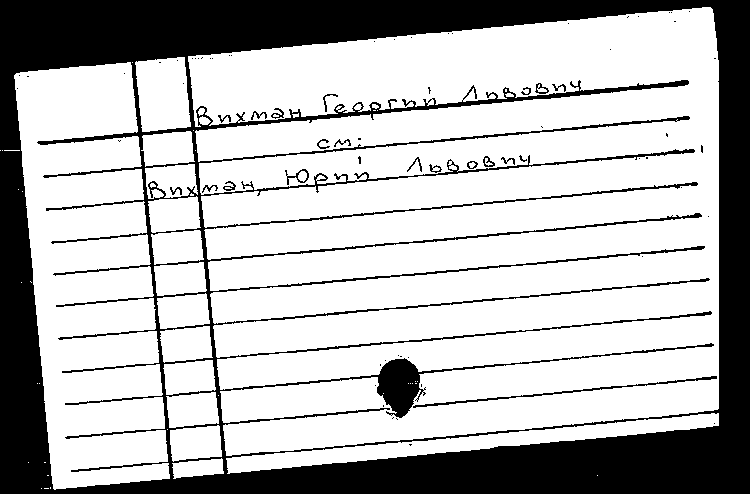 Вихман, Георгий Львович
см:
Вихман, Юрий Львович